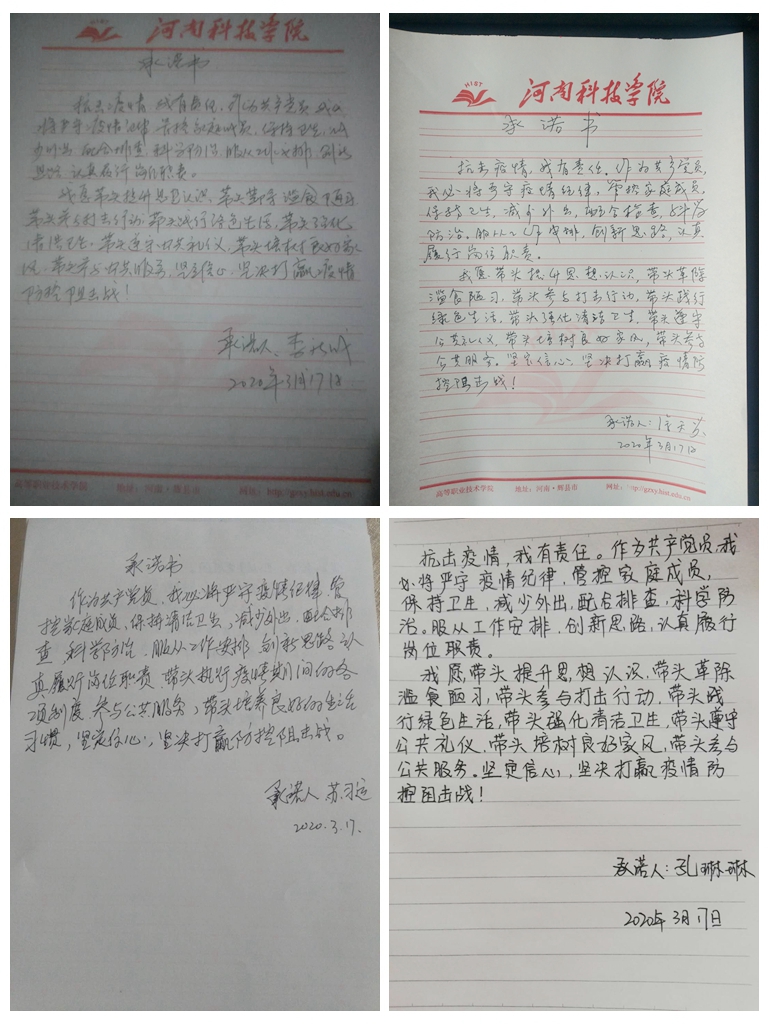 HIST
河南科技学院
承诺书
抗击疫情，我有责任。作为共产党员，我必
将严守疫情纪律，管控家庭成员，保持卫生，减
少外出，配合排查，科学防治。服从工作安排，创新
思路，认真履行岗位职责。
我愿带头提升思想认识，带头革除滥食陋习，
带头参与打击行动，带头践行绿色生活，带头强化
清洁卫生，带头遵守公共礼仪，带头培树良好家
风，带头参与公共服务，坚定信心，坚决打赢疫情
防控阻击战！
承诺人：李
2020年3月17日
高等职业技术学院 地址：河南·辉县市 网址：http://gzxy.hist.edu.cn
HIST
河南科技学院
承诺书
抗击疫情，我有责任。作为共产党员，
我必将严守疫情纪律，管控家庭成员，
保持卫生，减少外出，配合检查，科学
防治。服从工作安排，创新思路，认真
履行岗位职责。
我愿带头提升思想认识，带头革除
滥食陋习，带头参与打击行动，带头践行
绿色生活，带头强化清洁卫生，带头遵守
公共礼仪，带头培树良好家风，带头参与
公共服务。坚定信心，坚决打赢疫情防
控阻击战！
承诺人：
2020年3月17日
高等职业技术学院 地址：河南·辉县市 网址：http://gzxy.hist.edu.cn
承诺书
作为共产党员，我必将严守疫情纪律，管
控家庭成员，保持清洁卫生，减少外出，配合排
查，科学防治，服从工作安排，创新思路，认
真履行岗位职责，带头执行疫情期间的各
项制度，参与公共服务，带头培养良好的生活
习惯，坚定信心，坚决打赢防控阻击战。
承诺人 苏习运
2020.3.17.
抗击疫情，我有责任。作为共产党员，我
必将严守疫情纪律，管控家庭成员，
保持卫生，减少外出，配合排查，科学防
治。服从工作安排，创新思路，认真履行
岗位职责。
我愿带头提升思想认识，带头革除
滥食陋习，带头参与打击行动，带头践
行绿色生活，带头强化清洁卫生，带头遵守
公共礼仪，带头培树良好家风，带头参与
公共服务。坚定信心，坚决打赢疫情防
控阻击战！
承诺人：孔琳琳
2020年3月17日